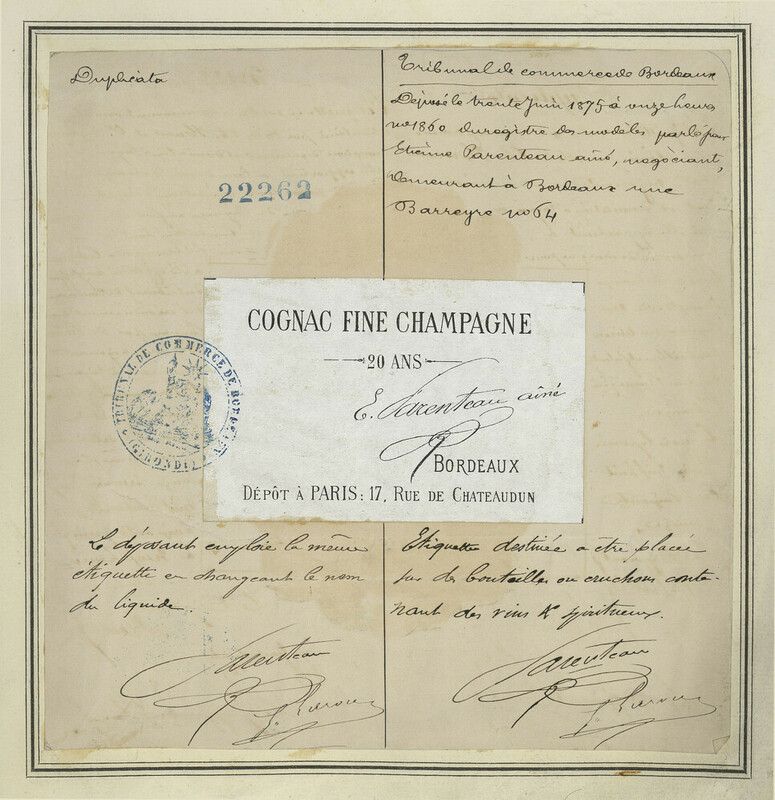 Duplicata
22262
Tribunal de commerce de Bordeaux
Déposé le trente Juin 1875 à onze heures
no 1860 du registre des modèles par le sieur
Etienne Parenteau aîné, négociant,
demeurant à Bordeaux rue
Barreyre no 64
COGNAC FINE CHAMPAGNE
20 ANS
E. Parenteau aîné
BORDEAUX
DÉPÔT À PARIS: 17, RUE DE CHATEAUDUN
TRIBUNAL DE COMMERCE DE BORDEAUX
(GIRONDE)
Le déposant emploie la même
étiquette en changeant le nom
du liquide.
Parenteau
Etiquette destinée a être placée
sur des bouteilles ou cruchons conte-
nant des vins & spiritueux.
Parenteau